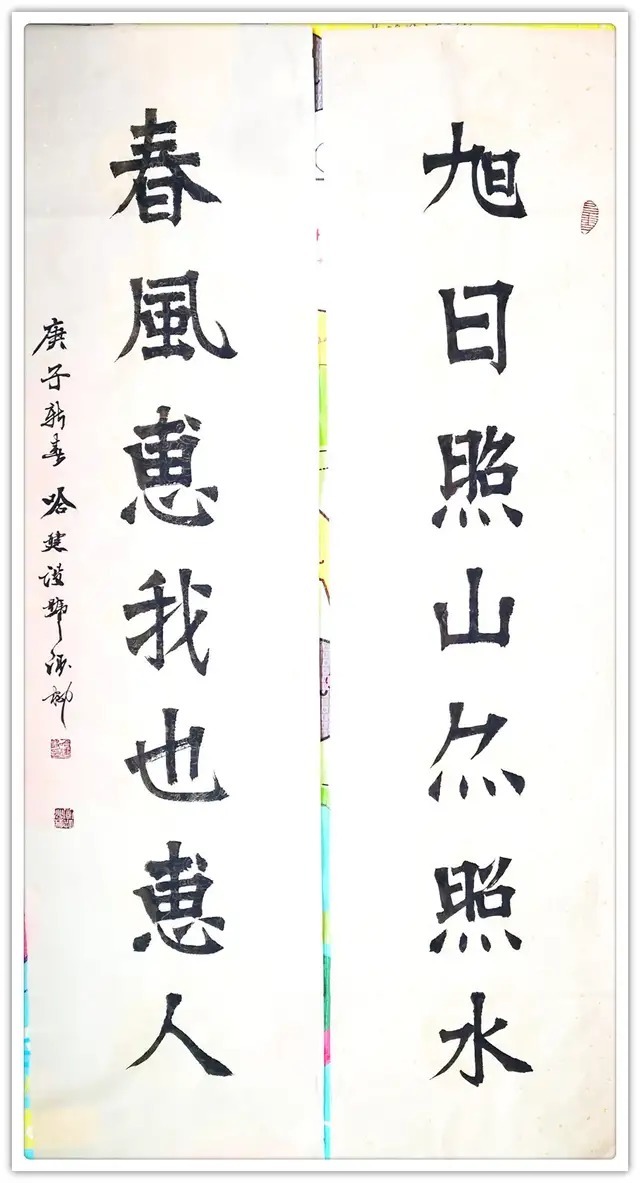 旭日照山亦照水
春風惠我也惠人
庚子新春 哈建设號